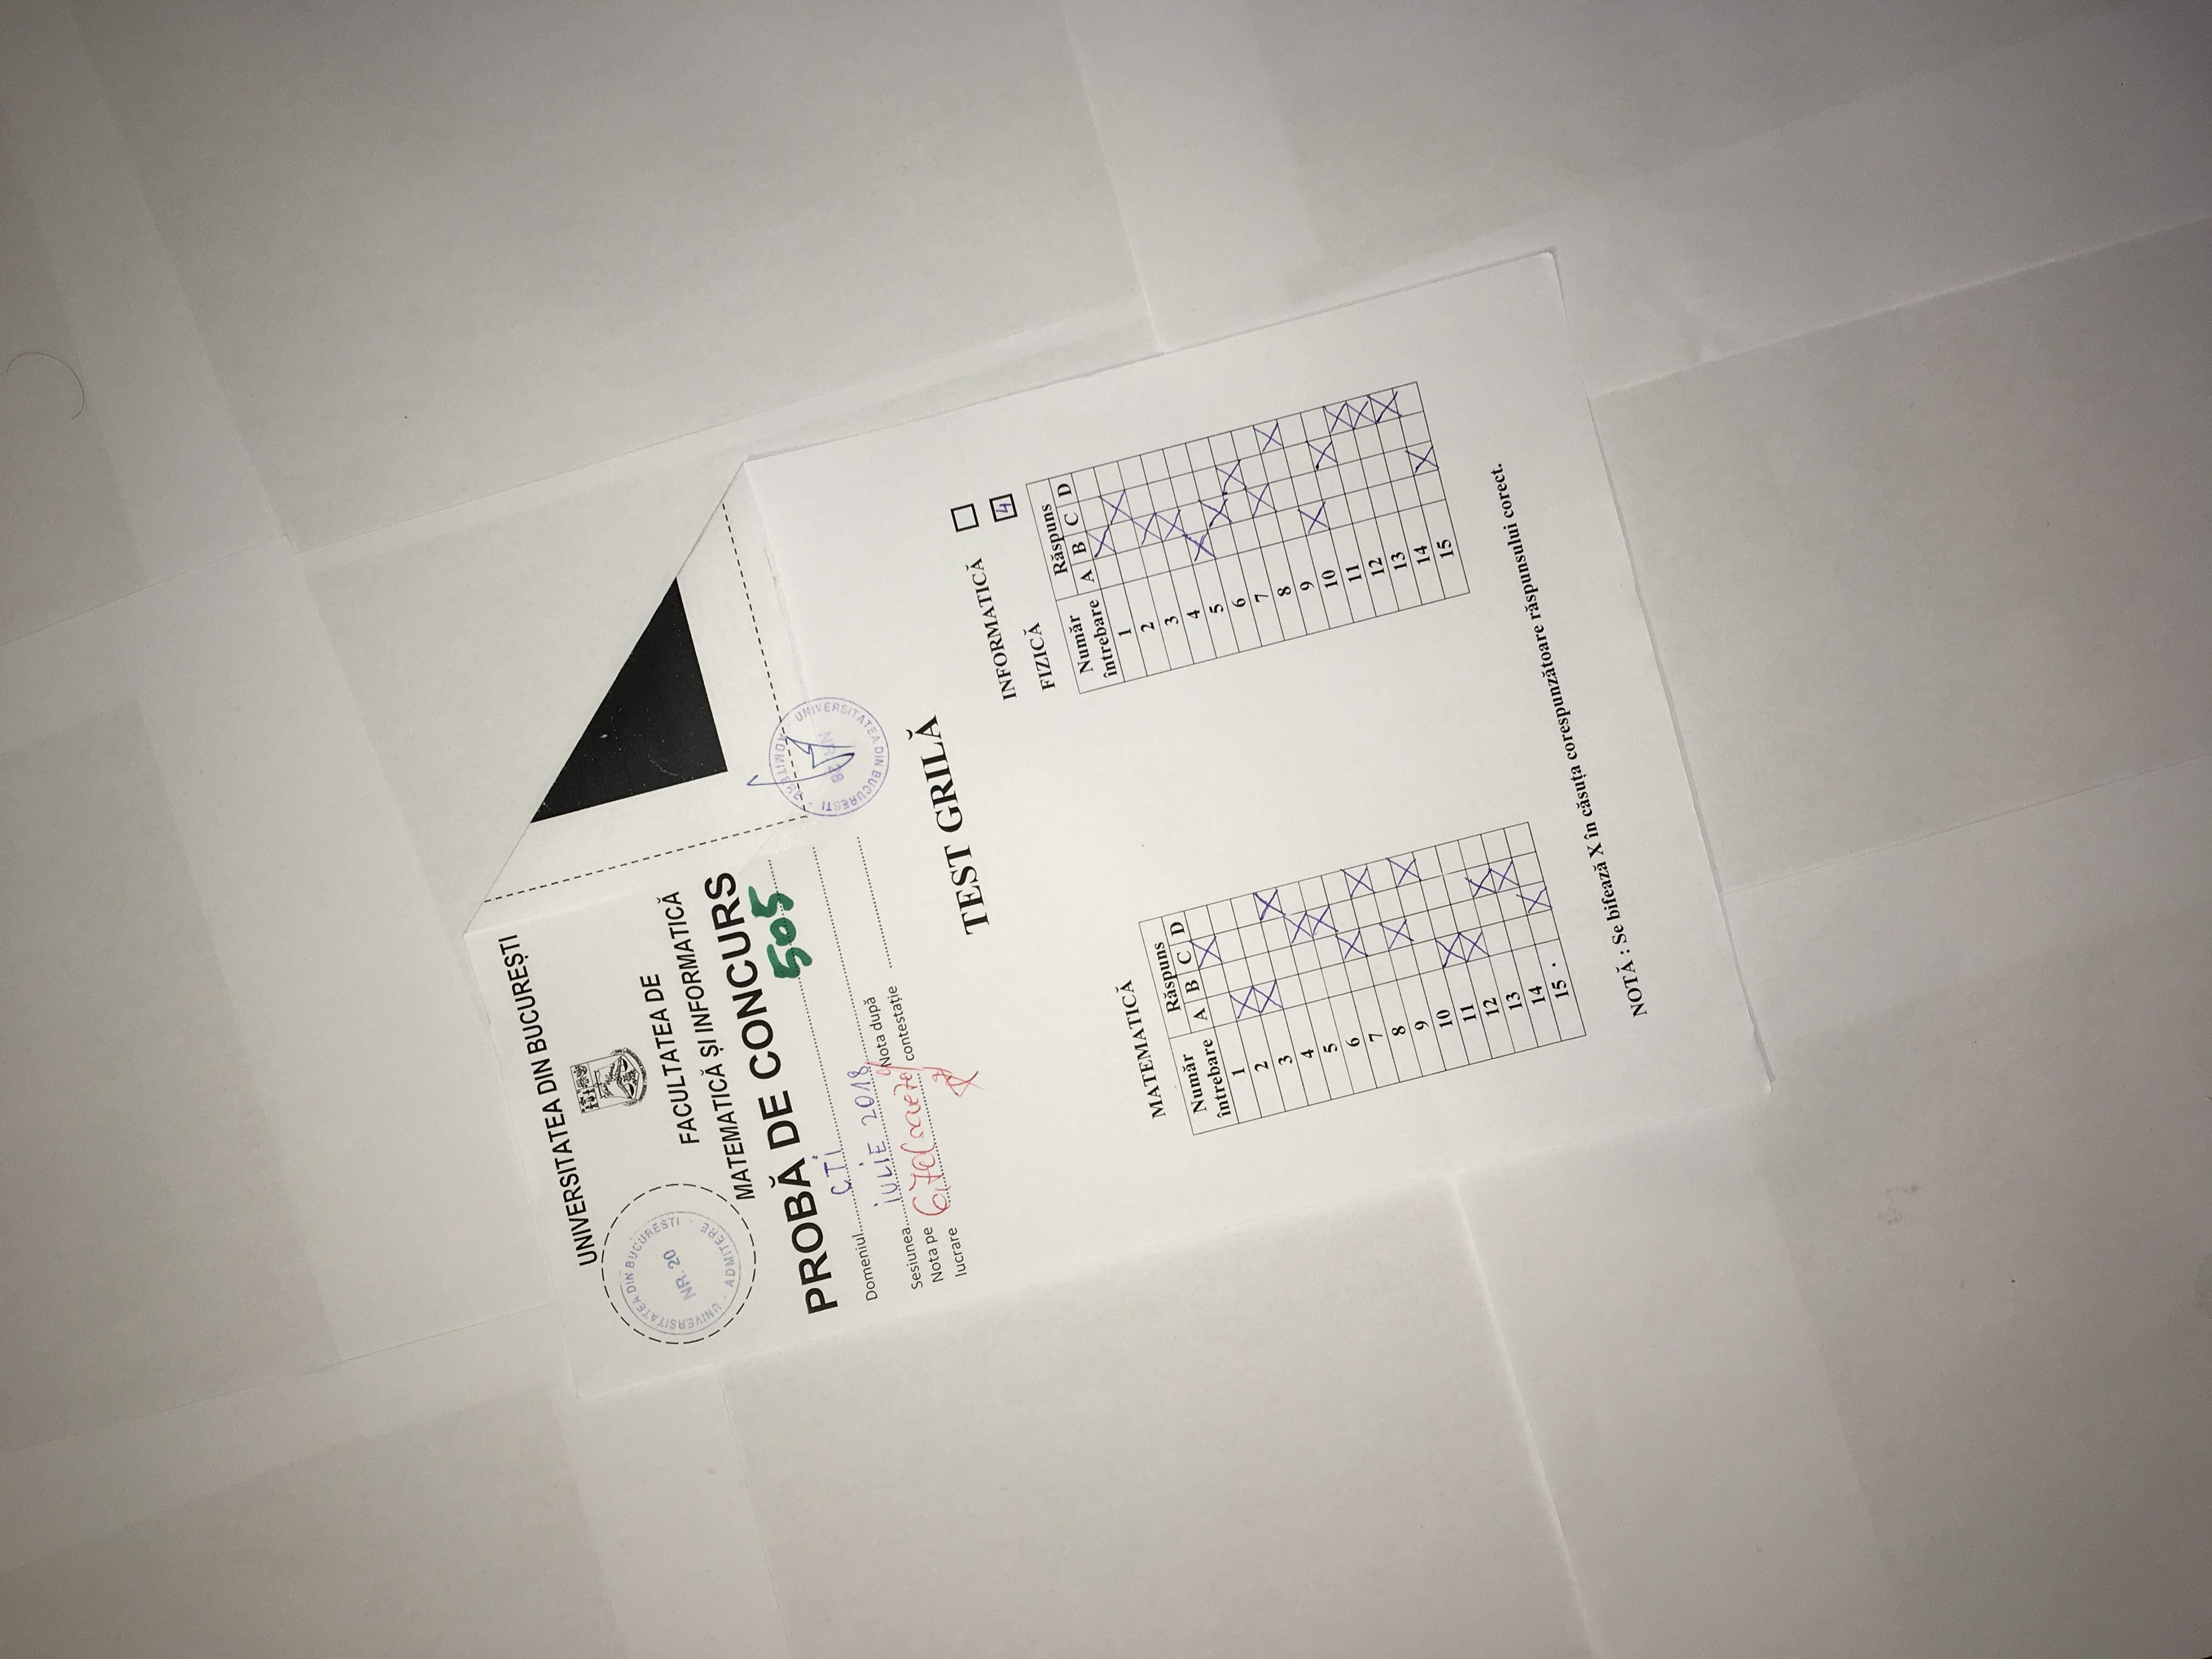 UNIVERSITATEA DIN BUCUREȘTI
UNIVERSITATEA DIN BUCUREȘTI - ADMITERE -
NR. 20
FACULTATEA DE
MATEMATICĂ ȘI INFORMATICĂ
PROBĂ DE CONCURS
505
Domeniul CTI
Sesiunea IULIE 2018
Nota pe lucrare 6,70
Nota după contestație
UNIVERSITATEA DIN BUCUREȘTI - ADMITERE
TEST GRILĂ
INFORMATICĂ
FIZICĂ 4
MATEMATICĂ
Număr întrebare Răspuns
A B C D
1 X
2 X
3 X
4 X
5 X
6 X
7 X
8 X
9 X
10 X
11 X
12 X
13 X
14 X
15 X
Număr întrebare Răspuns
A B C D
1 X
2 X
3 X
4 X
5 X
6 X
7 X
8 X
9 X
10 X
11 X
12 X
13 X
14 X
15 X
NOTĂ : Se bifează X în căsuța corespunzătoare răspunsului corect.